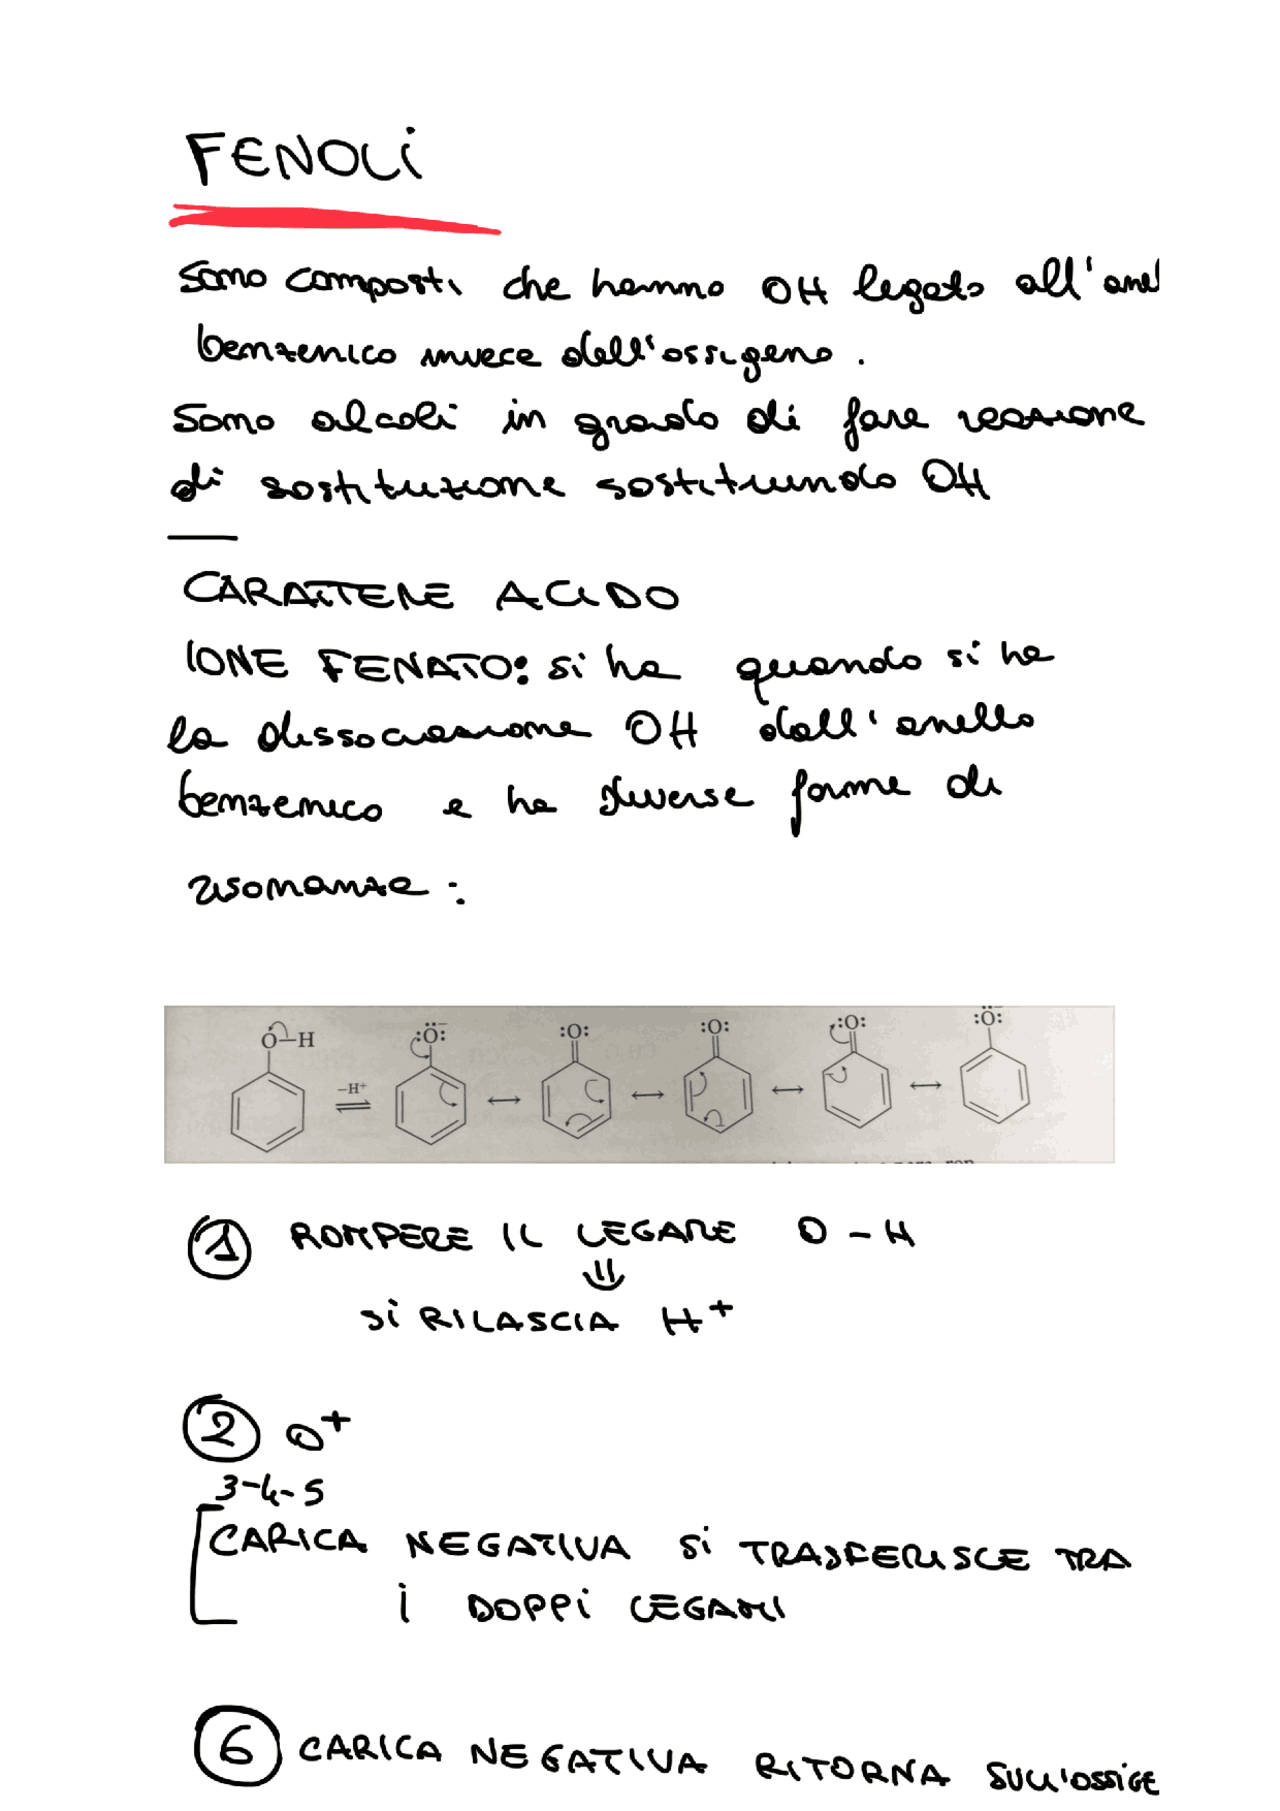 FENOLI
Sono composti che hanno OH legato all'anel
benzenico invece dell'ossigeno.
Sono alcoli in grado di fare reazione
di sostituzione sostituendo OH
CARATTERE ACIDO
IONE FENATO: si ha quando si ha
la dissociazione OH dall'anello
benzenico e ha diverse forme di
risonanze:
O–H :Ö:⁻ :O: :O: :O: :Ö:⁻
–H⁺
1 ROMPERE IL LEGAME O – H
⇓
Si RILASCIA H⁺
2 O⁺
3-4-5
CARICA NEGATIVA Si TRASFERISCE TRA
i DOPPi LEGAMI
6 CARICA NEGATIVA RITORNA SULL'OSSIGE